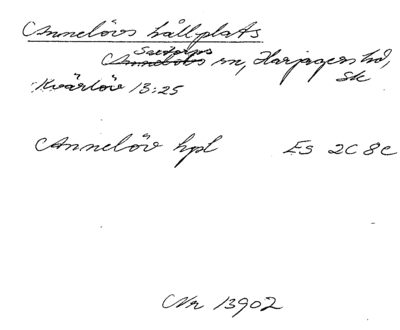 Annelövs hållplats
Saxtorps
Annelövs sn, Harjagers hd,
Sk
Kvärlöv 13:25
Annelöv hpl Es 2C 8c
Nr 13902